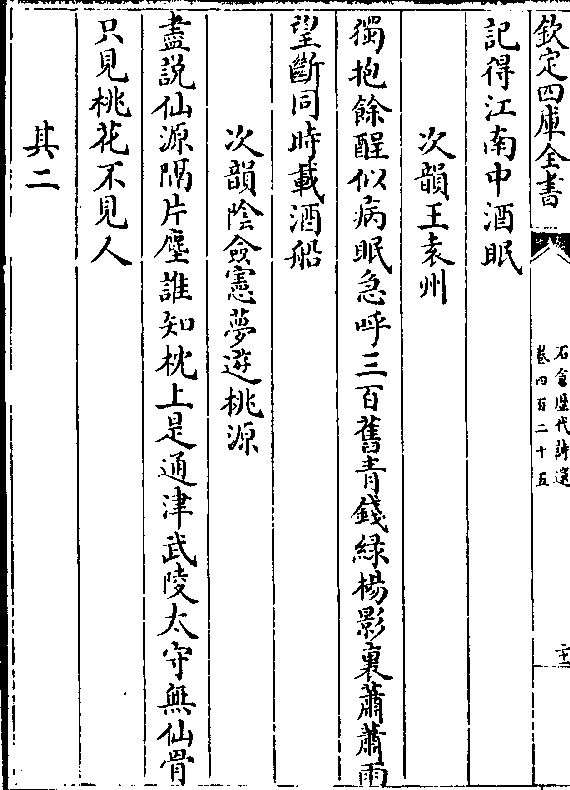 欽定四庫全書
石倉歷代詩選
卷四百二十五
記得江南中酒眠
次韻王袁州
獨抱餘酲似病眠急呼三百舊青錢綠楊影裏蕭蕭雨
望斷同時載酒船
次韻陰僉憲夢遊桃源
盡説仙源隔片塵誰知枕上是通津武陵太守無仙骨
只見桃花不見人
其二